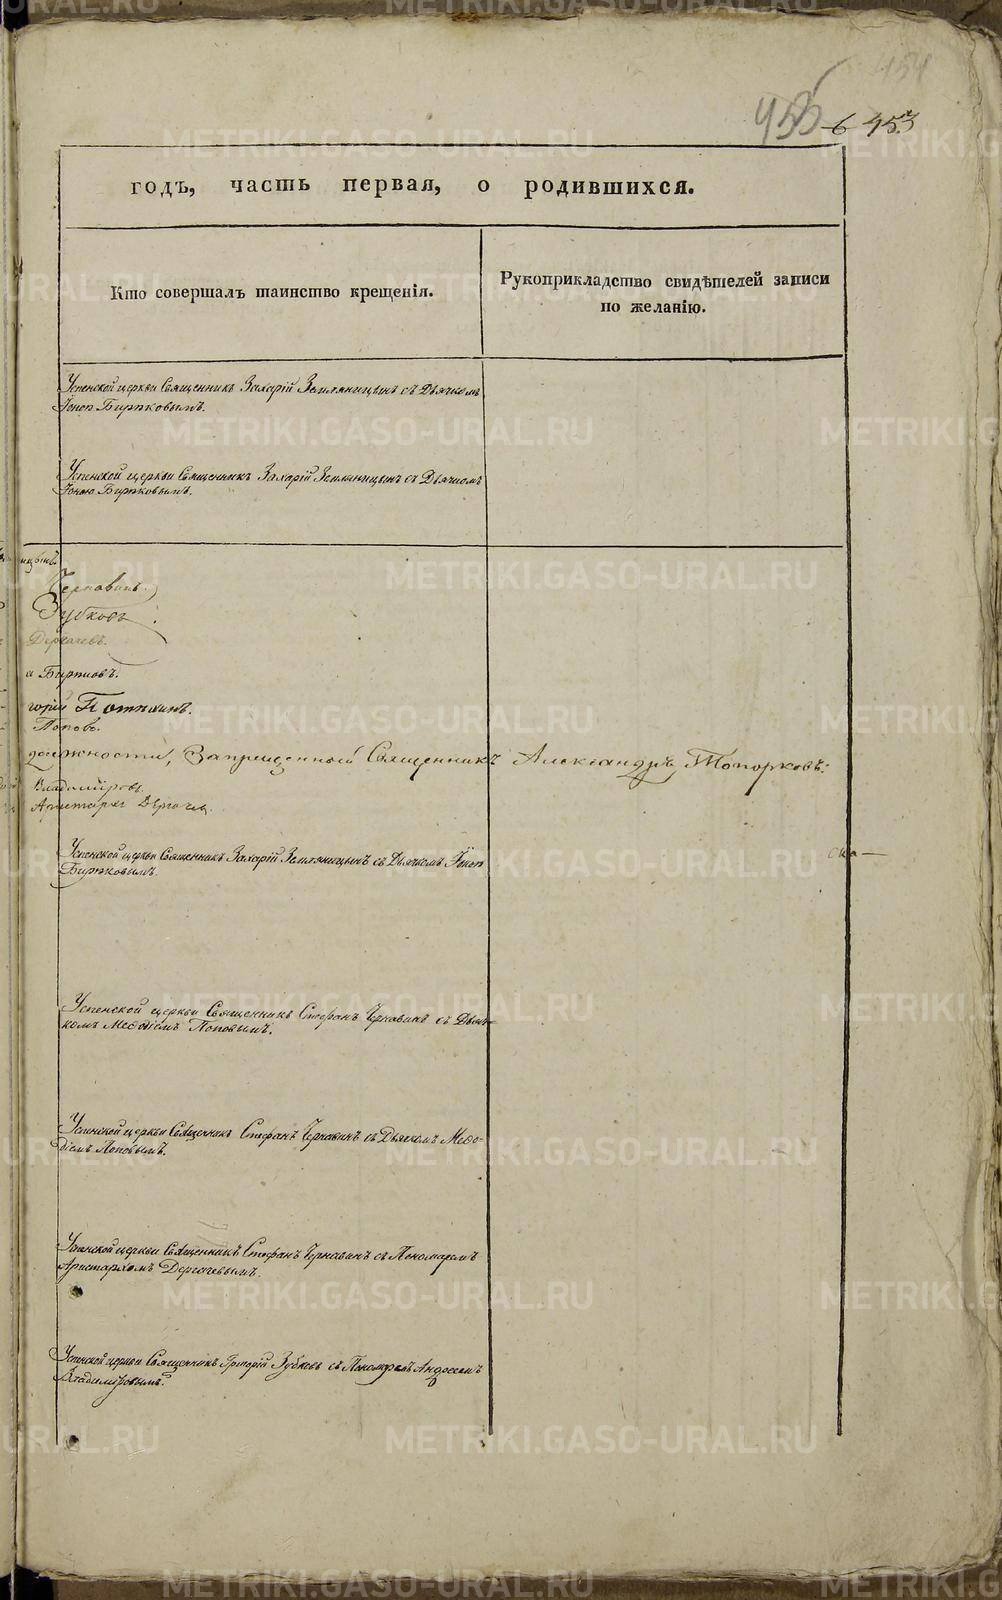 454
455 6 453
годъ, часть первая, о родившихся.
Кто совершалъ таинство крещенія.
Рукоприкладство свидѣтелей записи
по желанію.
Успенской церкви Священникъ Захарій Земляницынъ съ Дьячкомъ
Іоною Биртковымъ.
Успенской церкви Священникъ Захарій Земляницынъ съ Дьячкомъ
Іоною Биртковымъ.
Чернавинъ.
Зубковъ.
Дергачевъ.
горій Потихинъ.
Поповъ.
должности, Запрещенный Священникъ Александръ Топорковъ.
Владиміровъ
Аристархъ
Успенской церкви Священникъ Захарій Земляницынъ съ Дьячкомъ Іоною
Биртковымъ.
Успенской церкви Священникъ Стефанъ Чернавинъ съ Дьяч-
комъ Меѳодіемъ Поповымъ.
Успенской церкви Священникъ Стефанъ Чернавинъ съ Дьячкомъ Меѳо-
діемъ Поповымъ.
Успенской церкви Священникъ Стефанъ Чернавинъ съ Пономаремъ
Аристархомъ Дергачевымъ.
Успенской церкви Священникъ Григорій Зубковъ съ Пономаремъ Андреемъ
Владиміровымъ.
METRIKI.GASO-URAL.RU